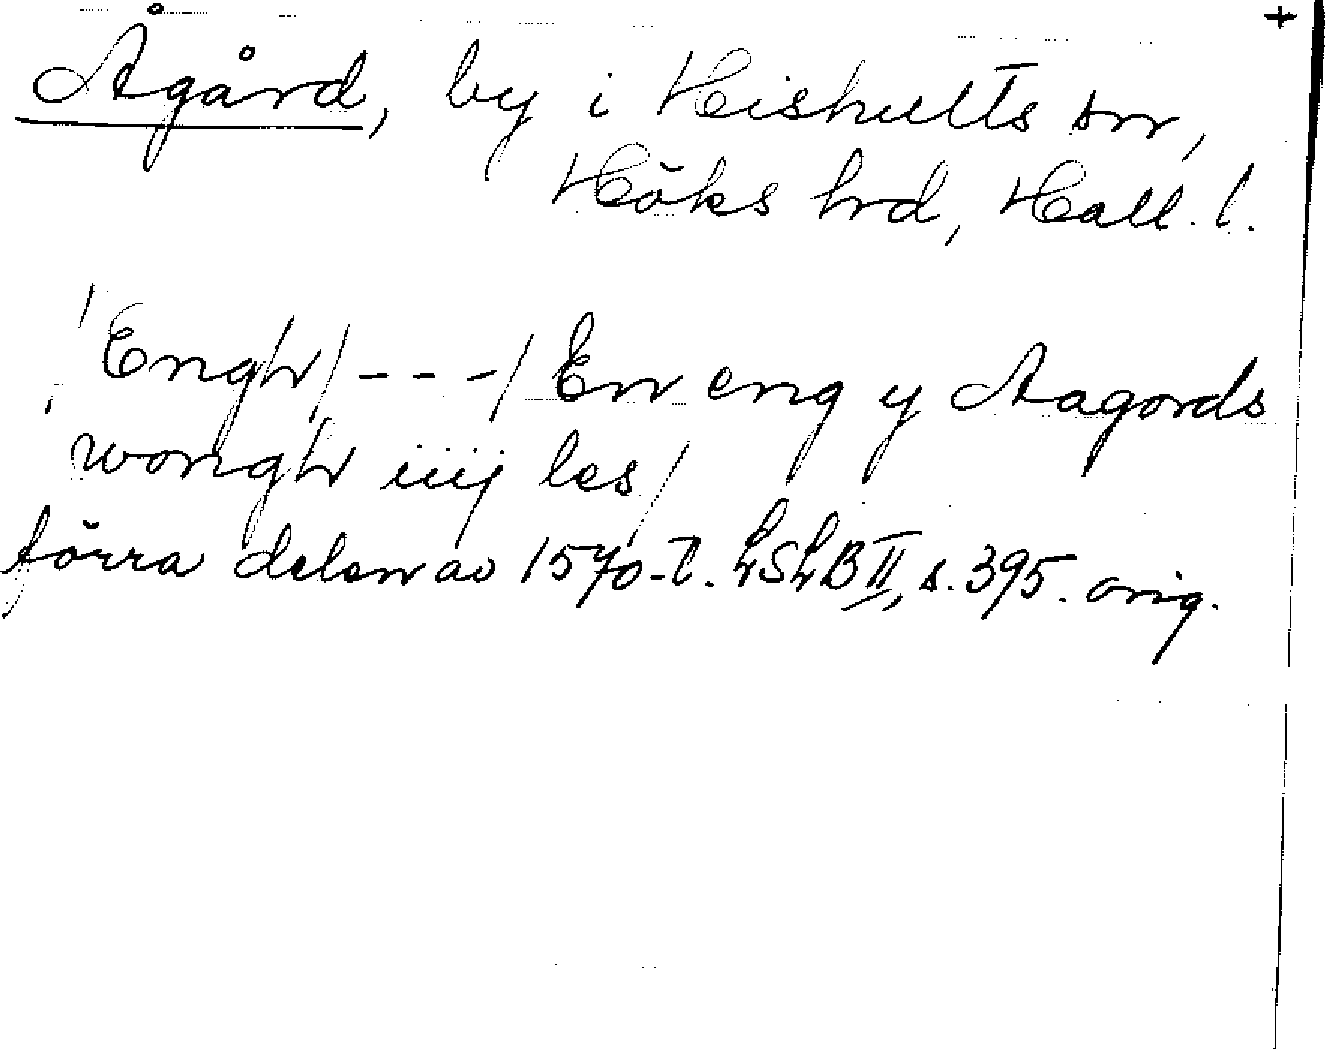 +
Ågård, by i Hishults sn,
Höks hrd, Hall. l.
/Engh/---/En eng y Aagords
wongh iiij les/
förra delen av 1570-t. LSLB II, s. 395. orig.